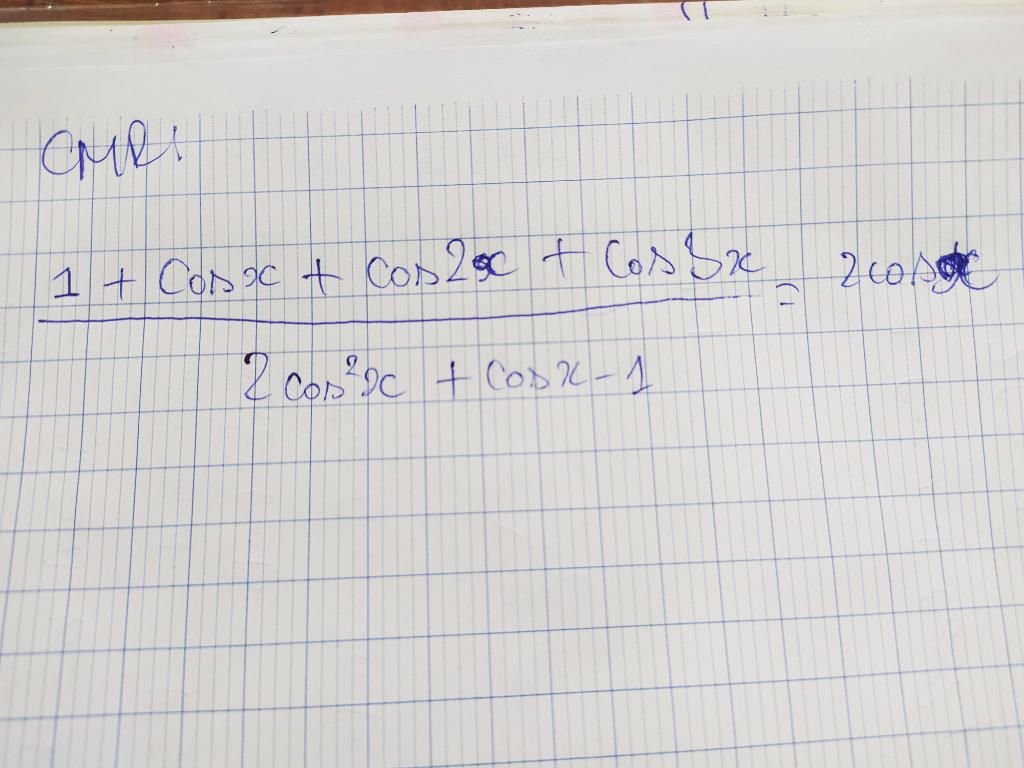 CMR:
1 + cosx + cos2x + cos3x = 2cosx
2cos²x + cosx - 1